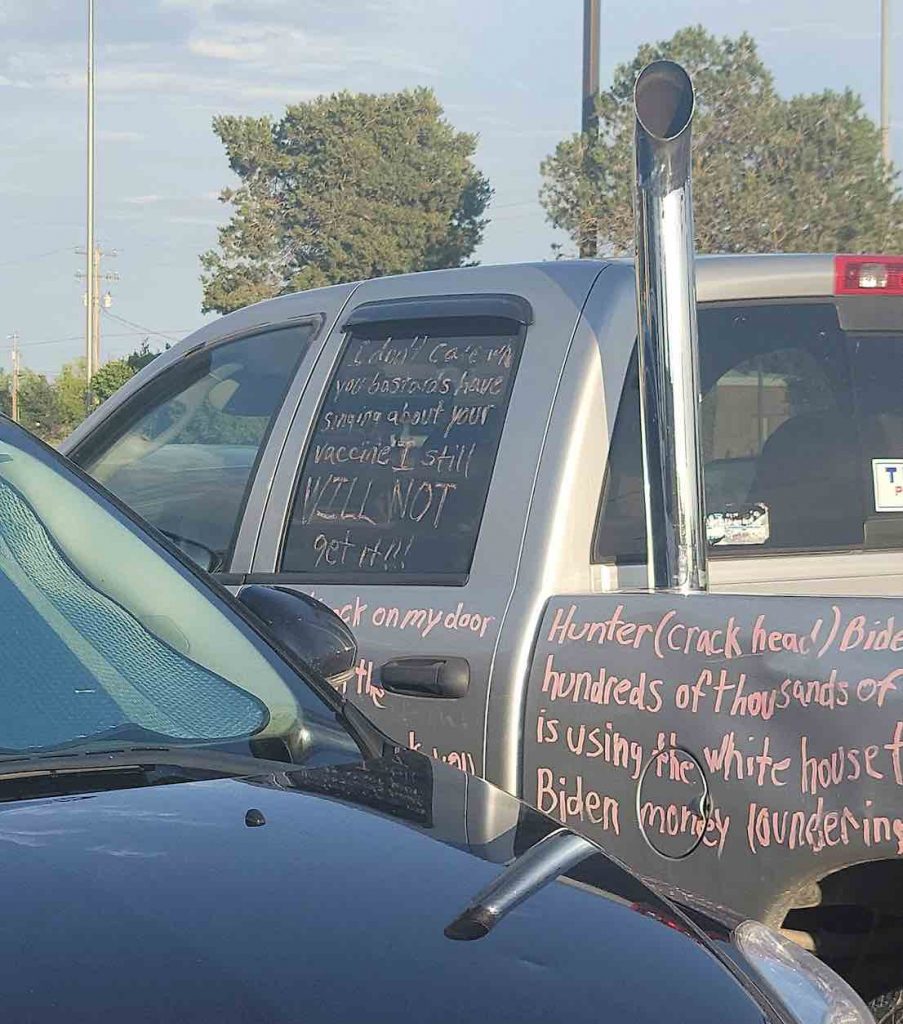 I don't care
you bastards have
singing about your
vaccine I still
WILL NOT
get it!!!
on my door
the
you
Hunter (crack head) Bide
hundreds of thousands of
is using the white house t
Biden money loundering
T
P